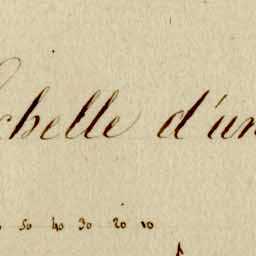 chelle d'un
50 40 30 20 10